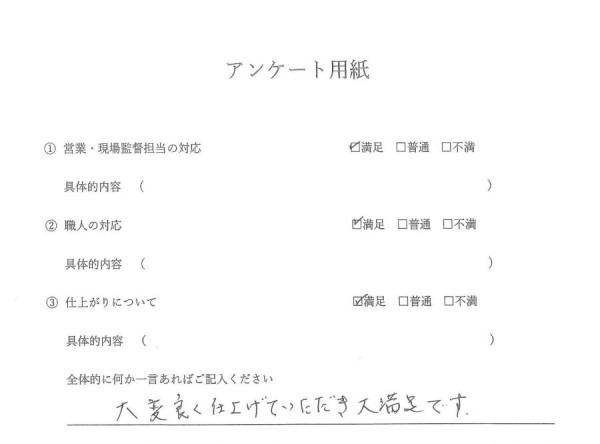 アンケート用紙
① 営業・現場監督担当の対応 ☑満足 ☐普通 ☐不満
具体的内容 ( )
② 職人の対応 ☑満足 ☐普通 ☐不満
具体的内容 ( )
③ 仕上がりについて ☑満足 ☐普通 ☐不満
具体的内容 ( )
全体的に何か一言あればご記入ください
大変良く仕上げていただき大満足です.